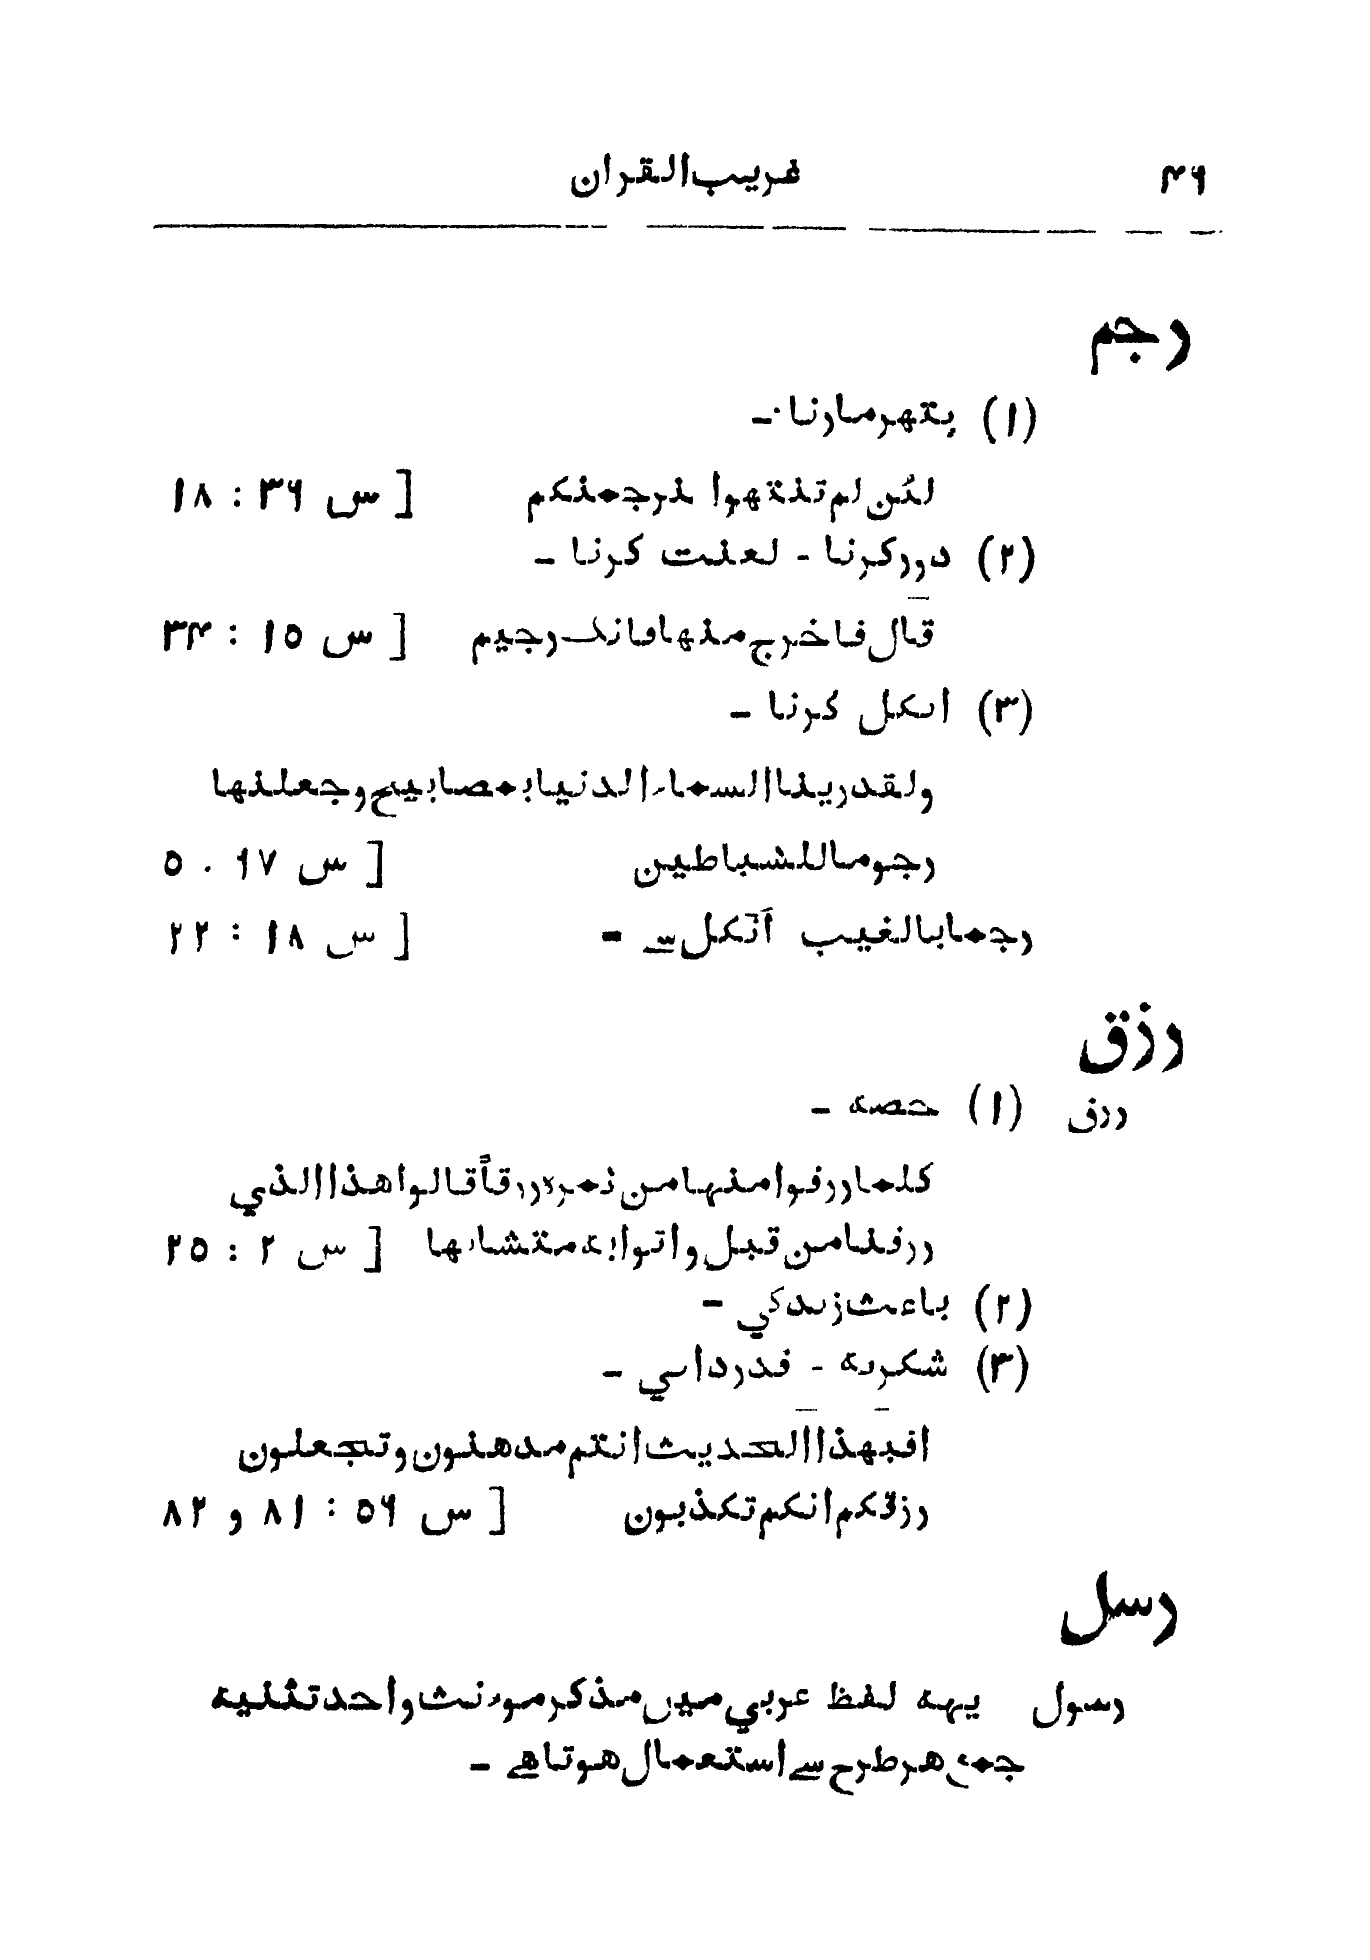 ۴۶ غریب القران
رجم
(۱) پتھر مارنا -
لئن لم تنتهوا لنرجمنكم [ س ۳۶ : ۱۸
(۲) دور کرنا - لعنت کرنا -
قال فاخرج منها فانك رجيم [ س ۱۵ : ۳۴
(۳) اٹکل کرنا -
ولقد زينا السماء الدنيا بمصابيح وجعلنها
رجوما للشياطين [ س ۶۷ . ۵
رجما بالغيب اٹکل سے - [ س ۱۸ : ۲۲
رزق
رزق (۱) حصه -
كلما رزقوا منها من ثمره رزقاً قالوا هذا الذي
رزقنا من قبل واتوا به متشابها [ س ۲ : ۲۵
(۲) باعث زندگي -
(۳) شکریه - قدردانی -
افبهذا الحديث انتم مدهنون وتجعلون
رزقكم انكم تكذبون [ س ۵۶ : ۸۱ و ۸۲
رسل
رسول یہه لفظ عربي میں مذکر موءنث واحد تثنیه
جمع هر طرح سے استعمال هوتا هے -